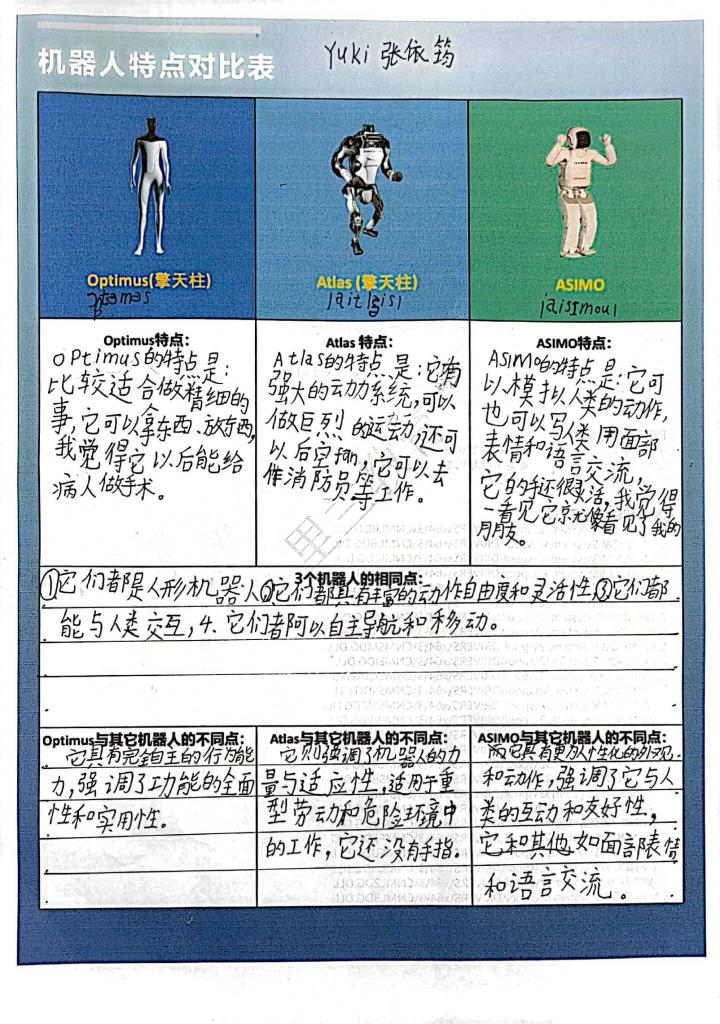 Yuki 张依筠
机器人特点对比表
Optimus(擎天柱)
Atlas (擎天柱)
ASIMO
|aitləis|
|aisɪmou|
Optimus特点:
OPtimus的特点是:
比较适合做精细的
事,它可以拿东西、放东西,
我觉得它以后能给
病人做手术。
Atlas 特点:
Atlas的特点是:它有
强大的动力系统,可以
做巨烈的运动,还可
以后空fan,它可以去
作消防员等工作。
ASIMO特点:
ASIMO的特点是:它可
以模拟人类的动作,
也可以写人类用面部
表情和语言交流,
它的手还很灵活,我觉得
一看见它就像看见了我的
朋友。
3个机器人的相同点:
①它们都是人形机器人②它们都具有丰富的动作自由度和灵活性,③它们都
能与人类交互,4、它们都可以自主导航和移动。
Optimus与其它机器人的不同点:
它具有完全自主的行为能
力,强调了功能的全面
性和实用性。
Atlas与其它机器人的不同点:
它则强调了机器人的力
量与适应性,适用于重
型劳动和危险环境中
的工作,它还没有手指。
ASIMO与其它机器人的不同点:
而它具有更为人性化的外观
和动作,强调了它与人
类的互动和友好性,
它和其他如面部表情
和语言交流。